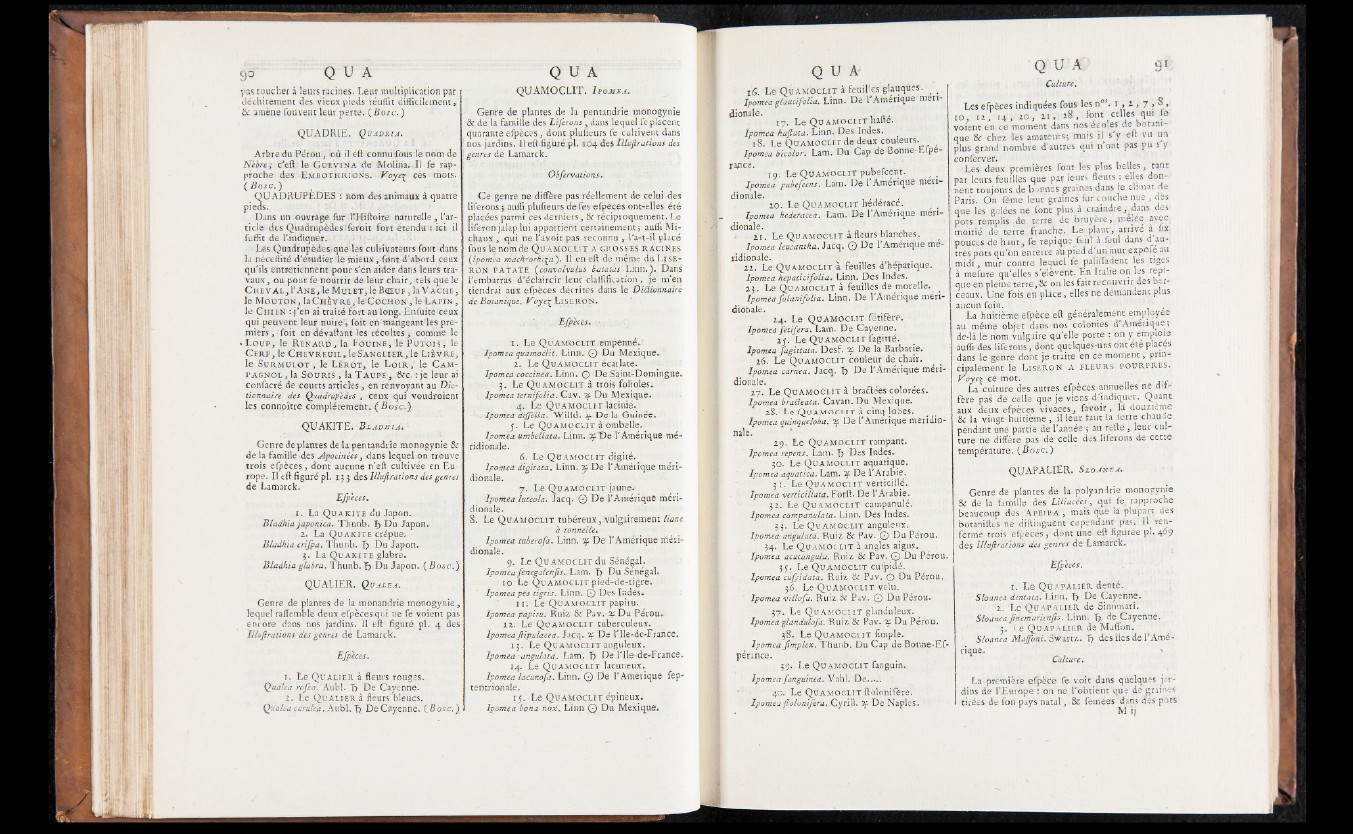 90 QUA QUA
pas toucher à leurs racines. Leur multiplication par
déchirement des vieux pieds réuſſit difficilement,
& amène ſouvent leur perte. (Bosc.)
QUADRIE. QUADRIA.
Arbre du Pérou, où il eſt connu ſous le nom de
Nèbre; c'eſt le GUEVINA de Molina. Il ſe rap-
proche des EMBOTHRIONS. Voyez ces mots.
(Bosc.)
QUADRUPÈDES : nom des animaux à quatre
pieds.
Dans un ouvrage ſur l'Hiſtoire naturelle, l'ar-
ticle des Quadrupèdes ſeroit fort étendu : ici il
ſuffit de l'indiquer.
Les Quadrupèdes que les cultivateurs ſont dans
la néceſſité d'étudier le mieux, ſont d'abord ceux
qu'ils entretiennent pour s'en aider dans leurs tra-
vaux, ou pour ſe nourrir de leur chair, tels que le
CHEVAL, l'ANE, le MULET, le BŒUF, la VACHE,
le MOUTON, la CHÈVRE, le COCHON, le LAPIN,
le CHIEN : j'en ai traité fort au long. Enſuite ceux
qui peuvent leur nuire, ſoit en mangeant les pre-
miers, ſoit en dévaſtant les récoltes, comme le
LOUP, le RENARD, la FOUINE, le PUTOIS, le
CERF, le CHEVREUIL, le SANGLIER, le LIÈVRE,
le SURMULOT, le LEROT, le LOIR, le CAM-
PAGNOL, la SOURIS, la TAUPE, &c. : je leur ai
conſacré de courts articles, en renvoyant au Dic-
tionnaire des Quadrupèdes, ceux qui voudroient
les connoître complétement. (Bosc.)
QUAKITE. BLADHIA.
Genre de plantes de la pentandrie monogynie &
de la famille des Apocinées, dans lequel on trouve
trois eſpèces, dont aucune n'eſt cultivée en Eu-
rope. Il eſt figuré pl. 133 des Illuſtrations des genres
de Lamarck.
Eſpèces.
1. La QUAKITE du Japon.
Bladhia japonica. Thunb. ♄ Du Japon.
2. La QUAKITE crépue.
Bladhia criſpa. Thunb. ♄ Du Japon.
3. La QUAKITE glabre.
Bladhia glabra. Thunb. ♄ Du Japon. (Bosc.)
QUALIER. QUALEA.
Genre de plantes de la monandrie monogynie,
lequel raſſemble deux eſpèces qui ne ſe voient pas
encore dans nos jardins. Il eſt figuré pl. 4 des
Illuſtrations des genres de Lamarck.
Eſpèces.
1. Le QUALIER à fleurs rouges.
Qualea roſea. Aubl. ♄ De Cayenne.
2. Le QUALIER à fleurs bleues.
Qualea cœrulea. Aubl. ♄ De Cayenne. (Bosc.)
QUAMOCLIT. IPOMEA.
Genre de plantes de la pentandrie monogynie
& de la famille des Liſerons, dans lequel ſe placent
quarante eſpèces, dont pluſieurs ſe cultivent dans
nos jardins. Il eſt figuré pl. 104 des Illuſtrations des
genres de Lamarck.
Obſervations.
Ce genre ne diffère pas réellement de celui des
liſerons; auſſi pluſieurs de ſes eſpèces ont-elles été
placées parmi ces derniers, & réciproquement. Le
liſeron jalap lui appartient certainement; auſſi Mi-
chaux, qui ne l'avoit pas reconnu, l'a-t-il placé
ſous le nom de QUAMOCLIT A GROSSES RACINES
(Ipomea machrorhiza). Il en eſt de même du LISE-
RON PATATE (convolvulus batatas Linn.). Dans
l'embarras d'éclaircir leur claſſification, je m'en
tiendrai aux eſpèces décrites dans le Dictionnaire
de Botanique. Voyez LISERON.
Eſpèces.
1. Le QUAMOCLIT empenné.
Ipomea quamoclit. Linn. ☉ Du Mexique.
2. Le QUAMOCLIT écarlate.
Ipomea coccinea. Linn. ☉ De Saint-Domingue.
3. Le QUAMOCLIT à trois folioles.
Ipomea ternifolia. Cav. ♃ Du Mexique.
4. Le QUAMOCLIT lacinié.
Ipomea diſſecta. Willd. ♃ De la Guinée.
5. Le QUAMOCLIT à ombelle.
Ipomea umbellata. Linn. ♃ De l'Amérique mé-
ridionale.
6. Le QUAMOCLIT digité.
Ipomea digitata. Linn. ♃ De l'Amérique méri-
dionale.
7. Le QUAMOCLIT jaune.
Ipomea luteola. Jacq. ☉ De l'Amérique méri-
dionale.
8. Le QUAMOCLIT tubéreux, vulgairement liane
à tonnelle.
Ipomea tuberoſa. Linn. ♃ De l'Amérique méri-
dionale.
9. Le QUAMOCLIT du Sénégal.
Ipomea ſenegalenſis. Lam. ♄ Du Sénégal.
10 Le QUAMOCLIT pied-de-tigre.
Ipomea pes tigris. Linn. ☉ Des Indes.
11. Le QUAMOCLIT papiru.
Ipomea papiru. Ruiz & Pav. ♃ Du Pérou.
12. Le QUAMOCLIT tuberculeux.
Ipomea ſtipulacea. Jacq. ♃ De l'Ile-de-France.
13. Le QUAMOCLIT anguleux.
Ipomea angulata. Lam. ♄ De l'Ile-de-France.
14. Le QUAMOCLIT lacuneux.
Ipomea lacunoſa. Linn. ☉ De l'Amérique ſep-
tentrionale.
15. Le QUAMOCLIT épineux.
Ipomea bona nox. Linn ☉ Du Mexique.
QUA QUA 91
16. Le QUAMOCLIT à feuilles glauques.
Ipomea glaucifolia. Linn. De l'Amérique méri-
dionale.
17. Le QUAMOCLIT haſté.
Ipomea haſtata. Linn. Des Indes.
18. Le QUAMOCLIT de deux couleurs.
Ipomea bicolor. Lam. Du Cap de Bonne-Eſpé-
rance.
19. Le QUAMOCLIT pubeſcent.
Ipomea pubeſcens. Lam. De l'Amérique méri-
dionale.
20. Le QUAMOCLIT hédéracé.
Ipomea hederacea. Lam. De l'Amérique méri-
dionale.
21. Le QUAMOCLIT à fleurs blanches.
Ipomea leucantha. Jacq. ☉ De l'Amérique mé-
ridionale.
22. Le QUAMOCLIT à feuilles d'hépatique.
Ipomea hepaticifolia. Linn. Des Indes.
23. Le QUAMOCLIT à feuilles de morelle.
Ipomea ſolanifolia. Linn. De l'Amérique méri-
dionale.
24. Le QUAMOCLIT fétifère.
Ipomea ſetifera. Lam. De Cayenne.
25. Le QUAMOCLIT ſagitté.
Ipomea ſagittata. Desf. ♃ De la Barbarie.
26. Le QUAMOCLIT couleur de chair.
Ipomea carnea. Jacq. ♄ De l'Amérique méri-
dionale.
27. Le QUAMOCLIT à bractées colorées.
Ipomea bracteata. Cavan. Du Mexique.
28. Le QUAMOCLIT à cinq lobes.
Ipomea quinqueloba. ♃ De l'Amérique méridio-
nale.
29. Le QUAMOCLIT rampant.
Ipomea repens. Lam. ♄ Des Indes.
30. Le QUAMOCLIT aquatique.
Ipomea aquatica. Lam. ♃ De l'Arabie.
31. Le QUAMOCLIT verticillé.
Ipomea verticillata. Forſt. De l'Arabie.
32. Le QUAMOCLIT campanulé.
Ipomea campanulata. Linn. Des Indes.
33. Le QUAMOCLIT anguleux.
Ipomea angulata. Ruiz & Pav. ☉ Du Pérou.
34. Le QUAMOCLIT à angles aigus.
Ipomea acutangula. Ruiz & Pav. ☉ Du Pérou.
35. Le QUAMOCLIT cuſpidé.
Ipomea cuſpidata. Ruiz & Pav. ☉ Du Pérou.
36. Le QUAMOCLIT velu.
Ipomea villoſa. Ruiz & Pav. ☉ Du Pérou.
37. Le QUAMOCLIT glanduleux.
Ipomea glanduloſa. Ruiz & Pav. ♃ Du Pérou.
38. Le QUAMOCLIT ſimple.
Ipomea ſimplex. Thunb. Du Cap de Bonne-Eſ-
pérance.
39. Le QUAMOCLIT ſanguin.
Ipomea ſanguinea. Vahl. De.....
40. Le QUAMOCLIT ſtolonifère.
Ipomea ſtolonifera. Cyrill. ♃ De Naples.
Culture.
Les eſpèces indiquées ſous les nos. 1, 2, 7, 8,
10, 12, 14, 20, 21, 28, ſont celles qui ſe
voient en ce moment dans nos écoles de botani-
que & chez les amateurs; mais il s'y eſt vu un
plus grand nombre d'autres qui n'ont pas pu s'y
conſerver.
Les deux premières ſont les plus belles, tant
par leurs feuilles que par leurs fleurs : elles don-
nent toujours de bonnes graines dans le climat de
Paris. On ſème leur graines ſur couche nue, dès
que les gelées ne ſont plus à craindre, dans des
pots remplis de terre de bruyère, mêlée avec
moitié de terre franche. Le plant, arrivé à ſix
pouces de haut, ſe repique ſeul à ſeul dans d'au-
tres pots qu'on enterre au pied d'un mur expoſé au
midi, mur contre lequel ſe paliſſadent les tiges
à meſure qu'elles s'élèvent. En Italie on les repi-
que en pleine terre, & on les fait recouvrir des ber-
ceaux. Une fois en place, elles ne demandent plus
aucun ſoin.
La huitième eſpèce eſt généralement employée
au même objet dans nos colonies d'Amérique;
de-là le nom vulgaire qu'elle porte : on y emploie
auſſi des liſerons, dont quelques-uns ont été placés
dans le genre dont je traite en ce moment, prin-
cipalement le LISERON A FLEURS POURPRES.
Voyez ce mot.
La culture des autres eſpèces annuelles ne dif-
fère pas de celle que je viens d'indiquer. Quant
aux deux eſpèces vivaces, ſavoir, la douzième
& la vingt-huitième, il leur faut la ſerre chaude
pendant une partie de l'année; au reſte, leur cul-
ture ne diffère pas de celle des liſerons de cette
température. (Bosc.)
QUAPALIER. SLOANEA.
Genre de plantes de la polyandrie monogynie
& de la famille des Liliacées, qui ſe rapproche
beaucoup des APEIBA, mais que la plupart des
botaniſtes ne diſtinguent cependant pas. Il ren-
ferme trois eſpèces, dont une eſt figurée pl. 469
des Illuſtrations des genres de Lamarck.
Eſpèces.
1. Le QUAPALIER denté.
Sloanea dentata. Linn. ♄ De Cayenne.
2. Le QUAPALIER de Sinemari.
Sloanea ſinemarienſis. Linn. ♄ de Cayenne.
3. Le QUAPALIER de Maſſon.
Sloanea Maſſoni. Swartz. ♄ des îles de l'Amé-
rique.
Culture.
La première eſpèce ſe voit dans quelques jar-
dins de l'Europe : on ne l'obtient que de graines
tirées de ſon pays natal, & ſemées dans des pots
M ij